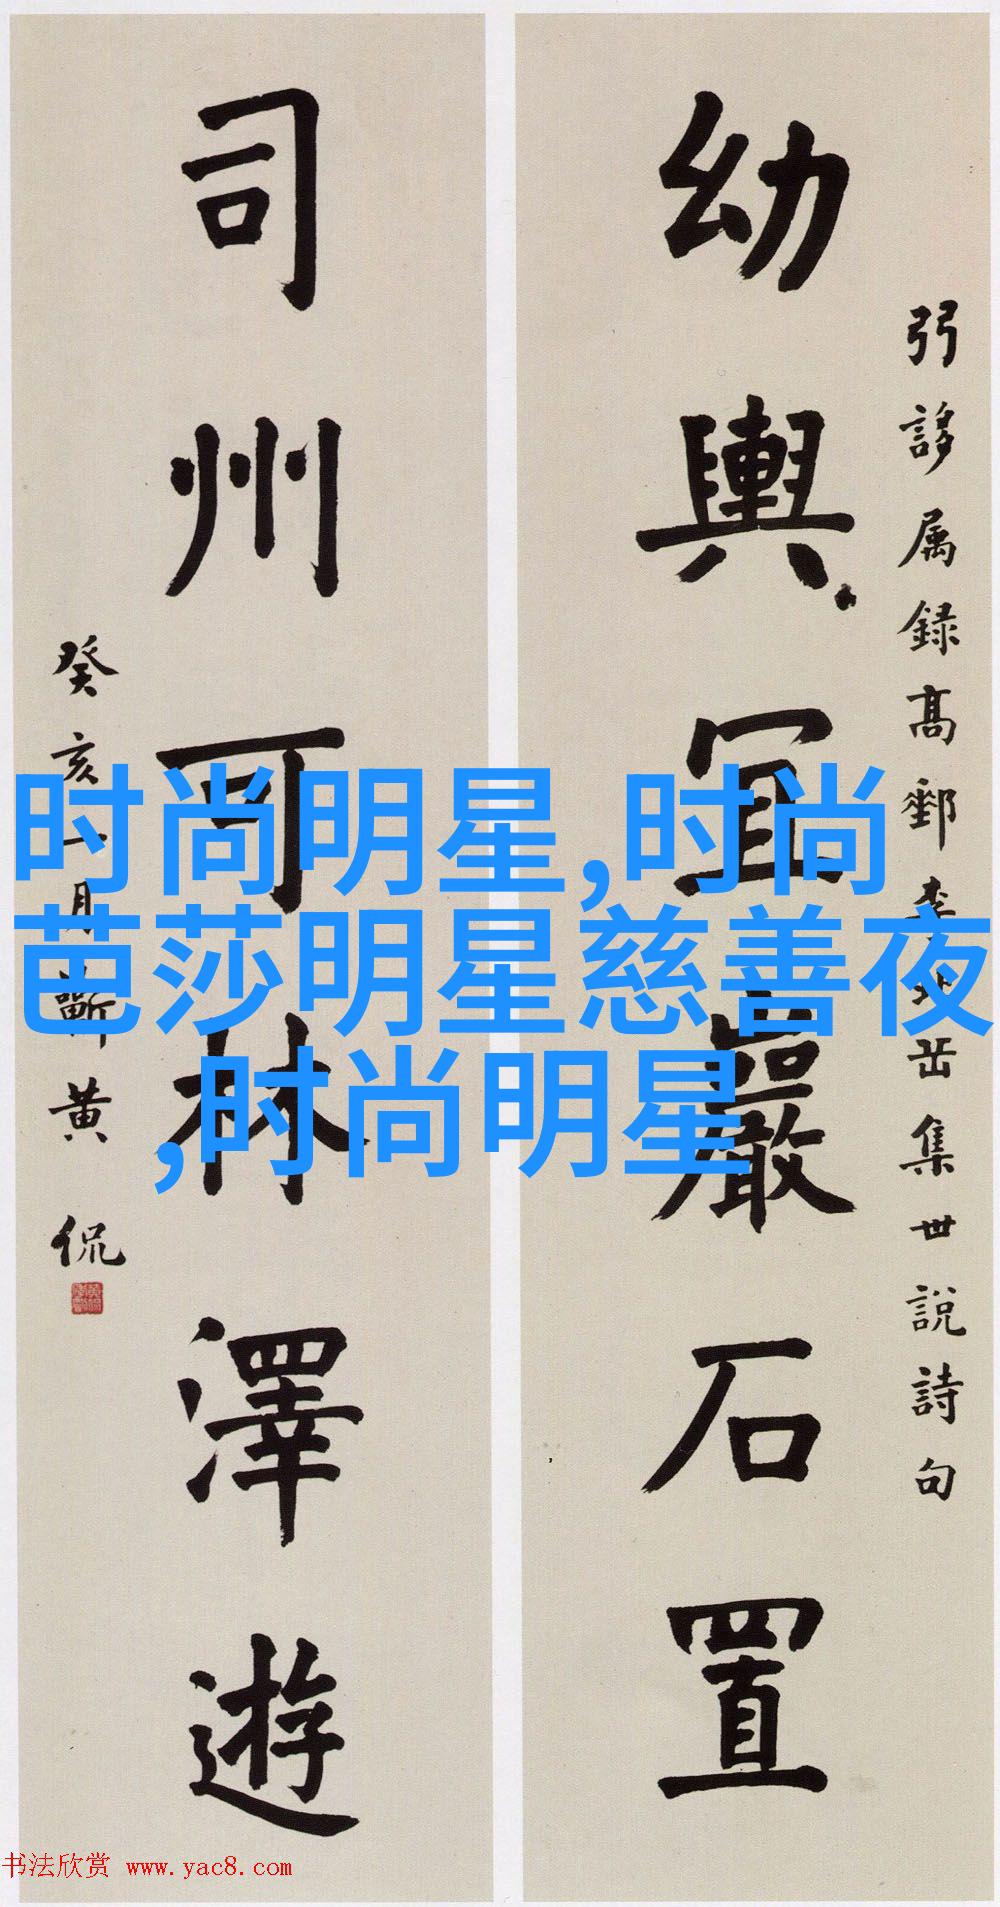 弱誃属録高郵李北岳集世說詩句
幼輿宜巖石置
司州可林澤遊
癸亥一月蘄黄侃
时尚明星,时尚
芭莎明星慈善夜
,时尚明星
书法欣赏 www.yac8.com